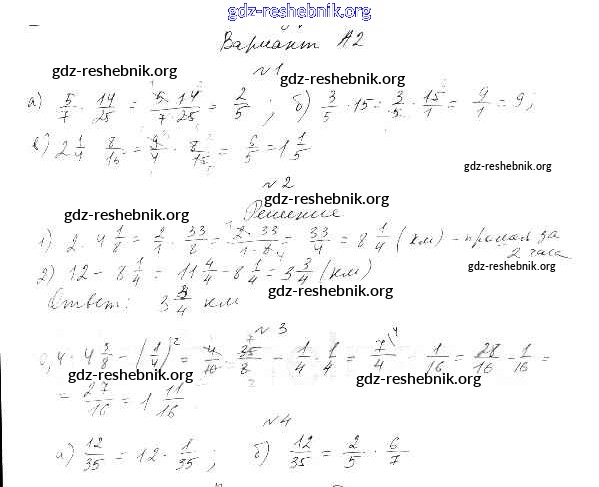 gdz-reshebnik.org
Вариант А2
gdz-reshebnik.org
№1
gdz-reshebnik.org
а) 5/7 · 14/25 = 5·14/7·25 = 2/5 ; б) 3/5 · 15 = 3/5 · 15/1 = 9/1 = 9;
в) 2 1/4 · 8/15 = 9/4 · 8/15 = 6/5 = 1 1/5
gdz-reshebnik.org
№2
gdz-reshebnik.org
gdz-reshebnik.org
Решение
1) 2 · 4 1/8 = 2/1 · 33/8 = 2·33/1·8 = 33/4 = 8 1/4 (км) - прошел за 2 часа
2) 12 - 8 1/4 = 11 4/4 - 8 1/4 = 3 3/4 (км)
gdz-reshebnik.org
gdz-reshebnik.org
Ответ: 3 3/4 км
№3
0,4 · 4 3/8 - (1/4)² = 4/10 · 35/8 - 1/4 · 1/4 = 7/4 - 1/16 = 28/16 - 1/16 =
gdz-reshebnik.org
gdz-reshebnik.org
= 27/16 = 1 11/16
№4
а) 12/35 = 12 · 1/35 ; б) 12/35 = 2/5 · 6/7
gdz-reshebnik.org
gdz-reshebnik.org